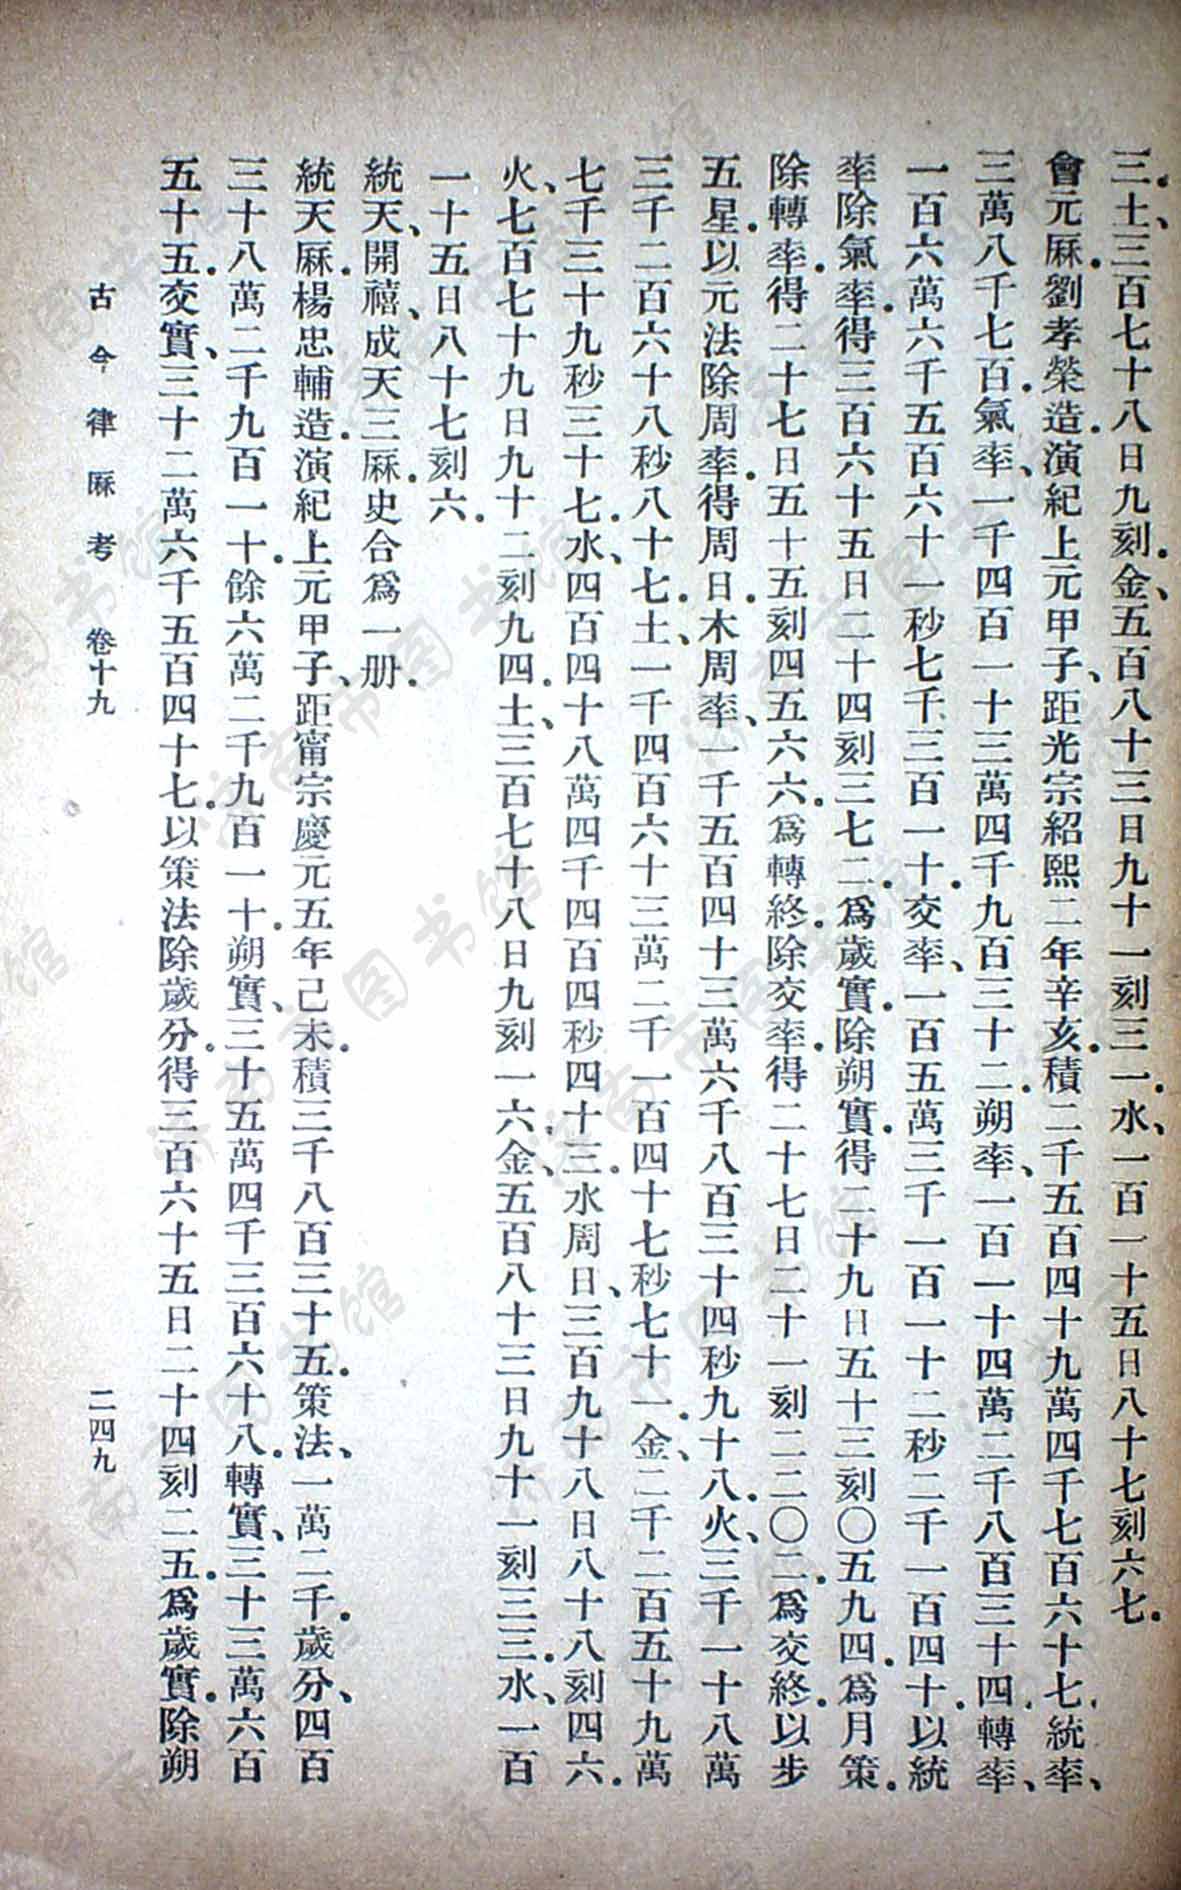 三。土、三百七十八日九刻。金、五百八十三日九十一刻三一。水、一百一十五日八十七刻六七。
會元厤。劉孝榮造。演紀上元甲子、距光宗紹熙二年辛亥。積二千五百四十九萬四千七百六十七。統率、
三萬八千七百。氣率、一千四百一十三萬四千九百三十二。朔率、一百一十四萬二千八百三十四。轉率、
一百六萬六千五百六十一秒七千三百一十。交率、一百五萬三千一百一十二秒二千一百四十。以統
率除氣率。得三百六十五日二十四刻三七二。爲歲實。除朔實。得二十九日五十三刻〇五九四。爲月策。
除轉率。得二十七日五十五刻四五六六。爲轉終。除交率。得二十七日二十一刻二二〇二。爲交終。以步
五星。以元法除周率。得周日。木周率、一千五百四十三萬六千八百三十四秒九十八。火、三千一十八萬
三千二百六十八秒八十七。土、一千四百六十三萬二千一百四十七秒七十一。金、二千二百五十九萬
七千三十九秒三十七。水、四百四十八萬四千四百四秒四十三。水周日、三百九十八日八十八刻四六。
火、七百七十九日九十二刻九四。土、三百七十八日九刻一六。金、五百八十三日九十一刻三三。水、一百
一十五日八十七刻六。
統天、開禧、成天三厤。史合爲一册。
統天厤。楊忠輔造。演紀上元甲子、距甯宗慶元五年己未。積三千八百三十五。策法、一萬二千。歲分、四百
三十八萬二千九百一十。餘六萬二千九百一十。朔實、三十五萬四千三百六十八。轉實、三十三萬六百
五十五。交實、三十二萬六千五百四十七。以策法除歲分。得三百六十五日二十四刻二五。爲歲實。除朔
古今律厤考 卷十九 二四九